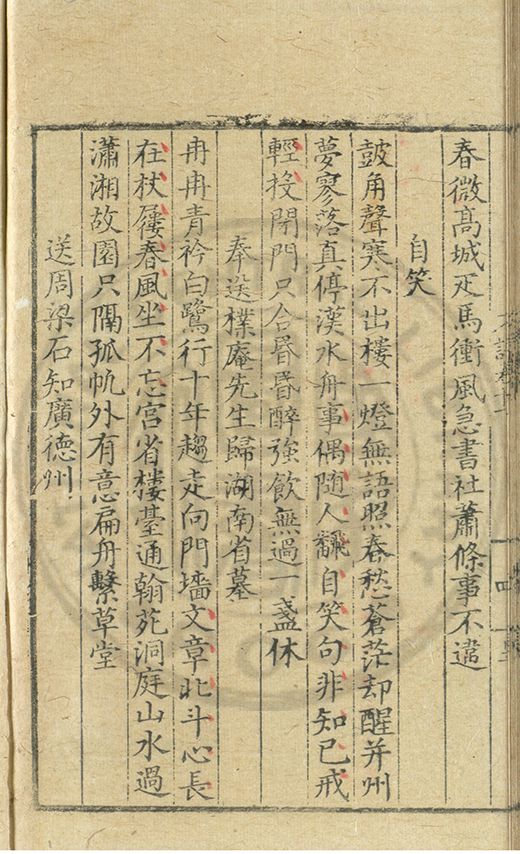 春微高城疋馬衝風急書社蕭條事不違
自笑
鼓角聲寒不出樓一燈無語照春愁蒼茫却醒并州
夢寥落真停漢水舟事偶随人飜自笑句非知已戒
輕投閉門只合昬昬醉強飲無過一盞休
奉送樸庵先生歸湖南省墓
冉冉青衿白鷺行十年趨走向門墻文章北斗心長
在杖屨春風坐不忘宫省樓臺通翰苑洞庭山水過
瀟湘故園只隔孤帆外有意扁舟繫草堂
送周梁石知廣德州